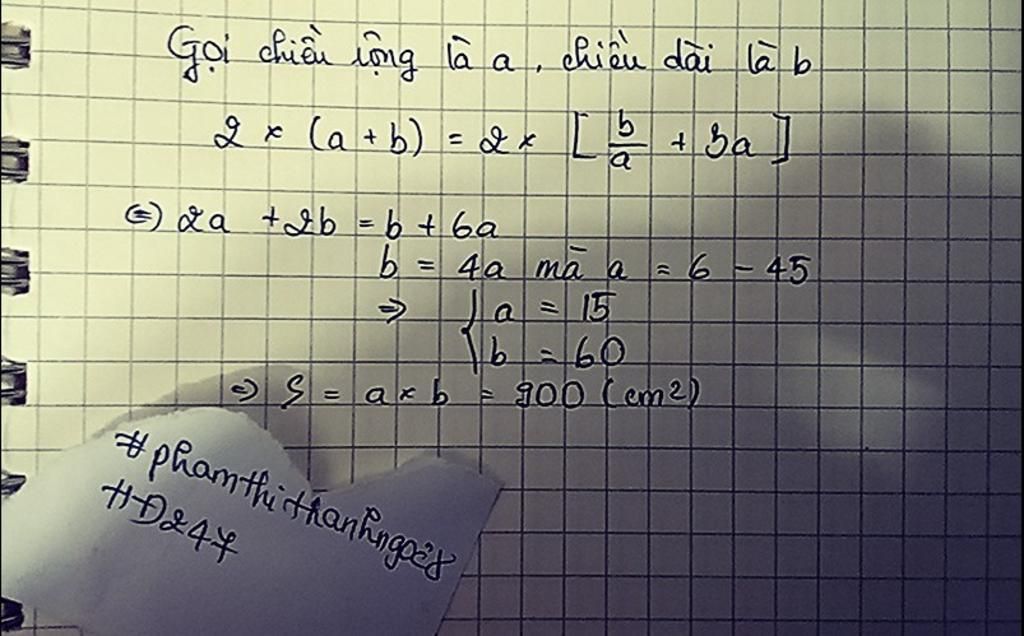 Gọi chiều rộng là a, chiều dài là b
2 × (a + b) = 2 × [ b/a + 3a ]
⇔ 2a + 2b = b + 6a
b = 4a mà a = 6 - 45
⇒ { a = 15
b = 60
⇒ S = a × b = 900 (cm2)
#phamthithanhngoc8
#Đ247